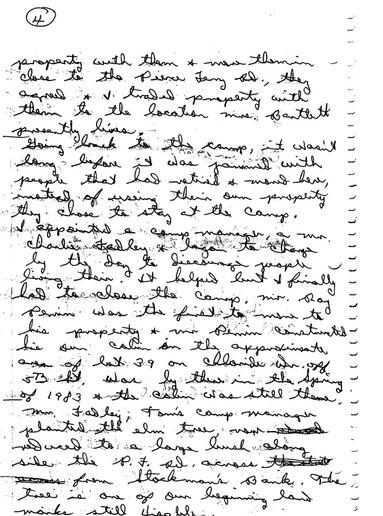 4
property with them & move them in
close to the Pierce Ferry Rd., they
agreed & I traded property with
them to the location mrs. Bartlett
presently lives.
Going back to the camp, it wasn't
long before it was jammed with
people that had retired & moved here,
instead of using their own property
they chose to stay at the camp.
I appointed a camp manager a mr.
Charlie Fadley & began to charge
by the day to discourage people
living there. It helped but I finally
had to close the camp. mr. Ray
was the first to move to
his property & mr constructed
his own cabin on the approximate
area of lot 39 on Chloride
5th St. was by there in the spring
of 1983 & the cabin was still there.
mr. Fadley, Tom's camp manager
planted the elm tree, now
reduced to a large bush along
side the P.F. rd. across
from Stockman's Bank. The
tree is one of our beginning land
marks still